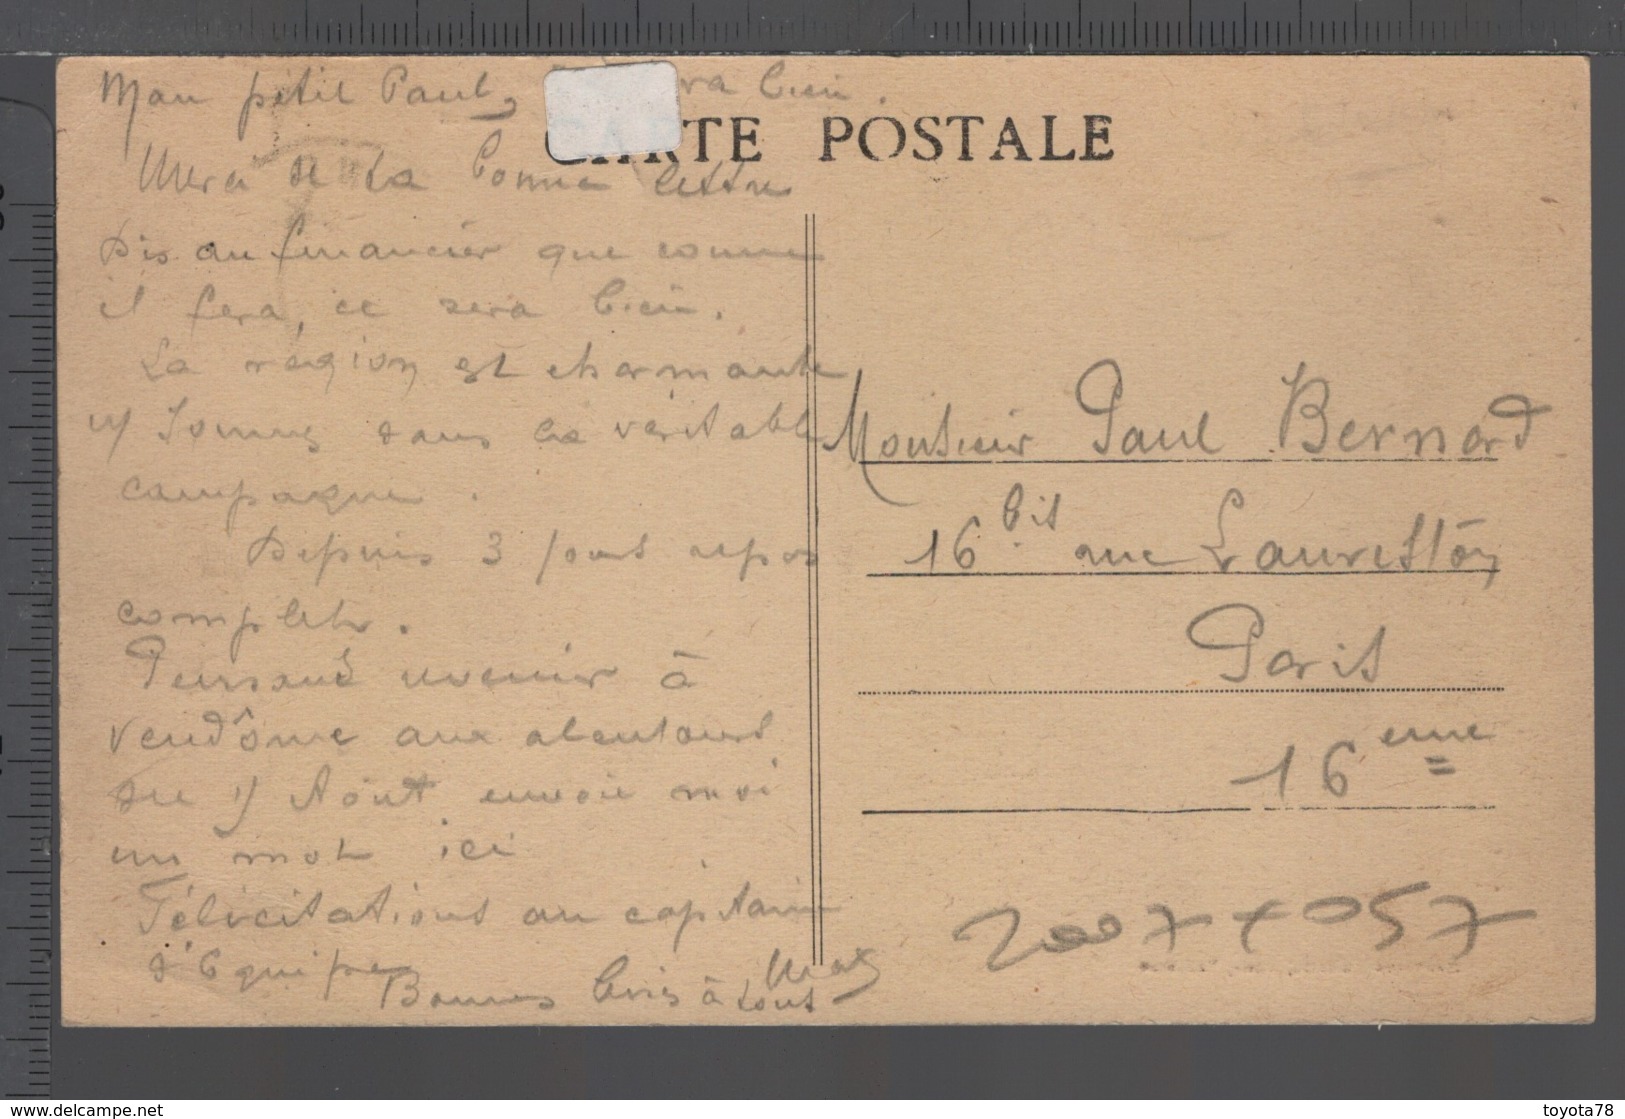 Mon petit Paul, ra bien.
CARTE POSTALE
Merci de ta bonne lettre
Dis au financier que comme
il fera, ce sera bien.
La région est charmante
n/ sommes dans la véritable
campagne.
Depuis 3 jours repos
complet.
Pensant revenir à
Vendôme aux alentours
du 1/ Août envoie moi
un mot ici
Félicitations au capitaine
d'équipe
Bonnes bises à tous
Max
Monsieur Paul Bernard
16 bis rue Lauriston
Paris
16 eme
2007 + 057
www.delcampe.net
toyota78